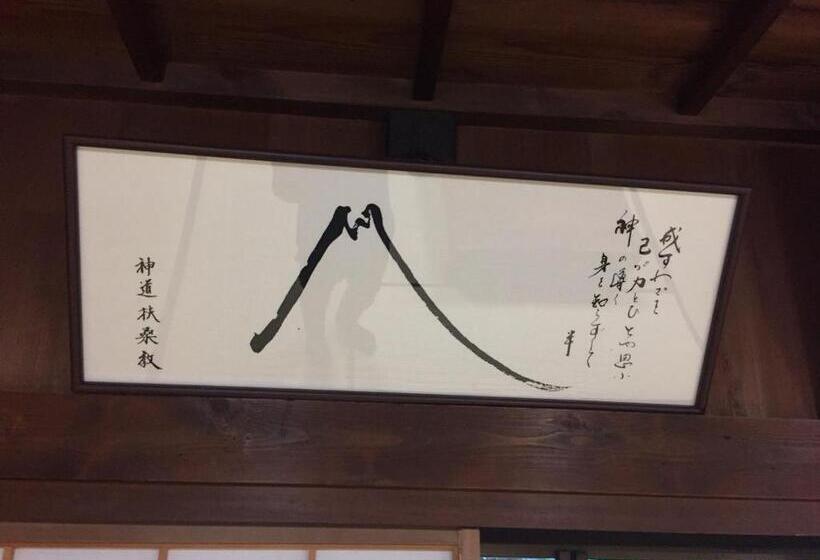 成すわざを
己が力とひとや思ふ
神の導く
身を知らずして
半
神道扶桑教